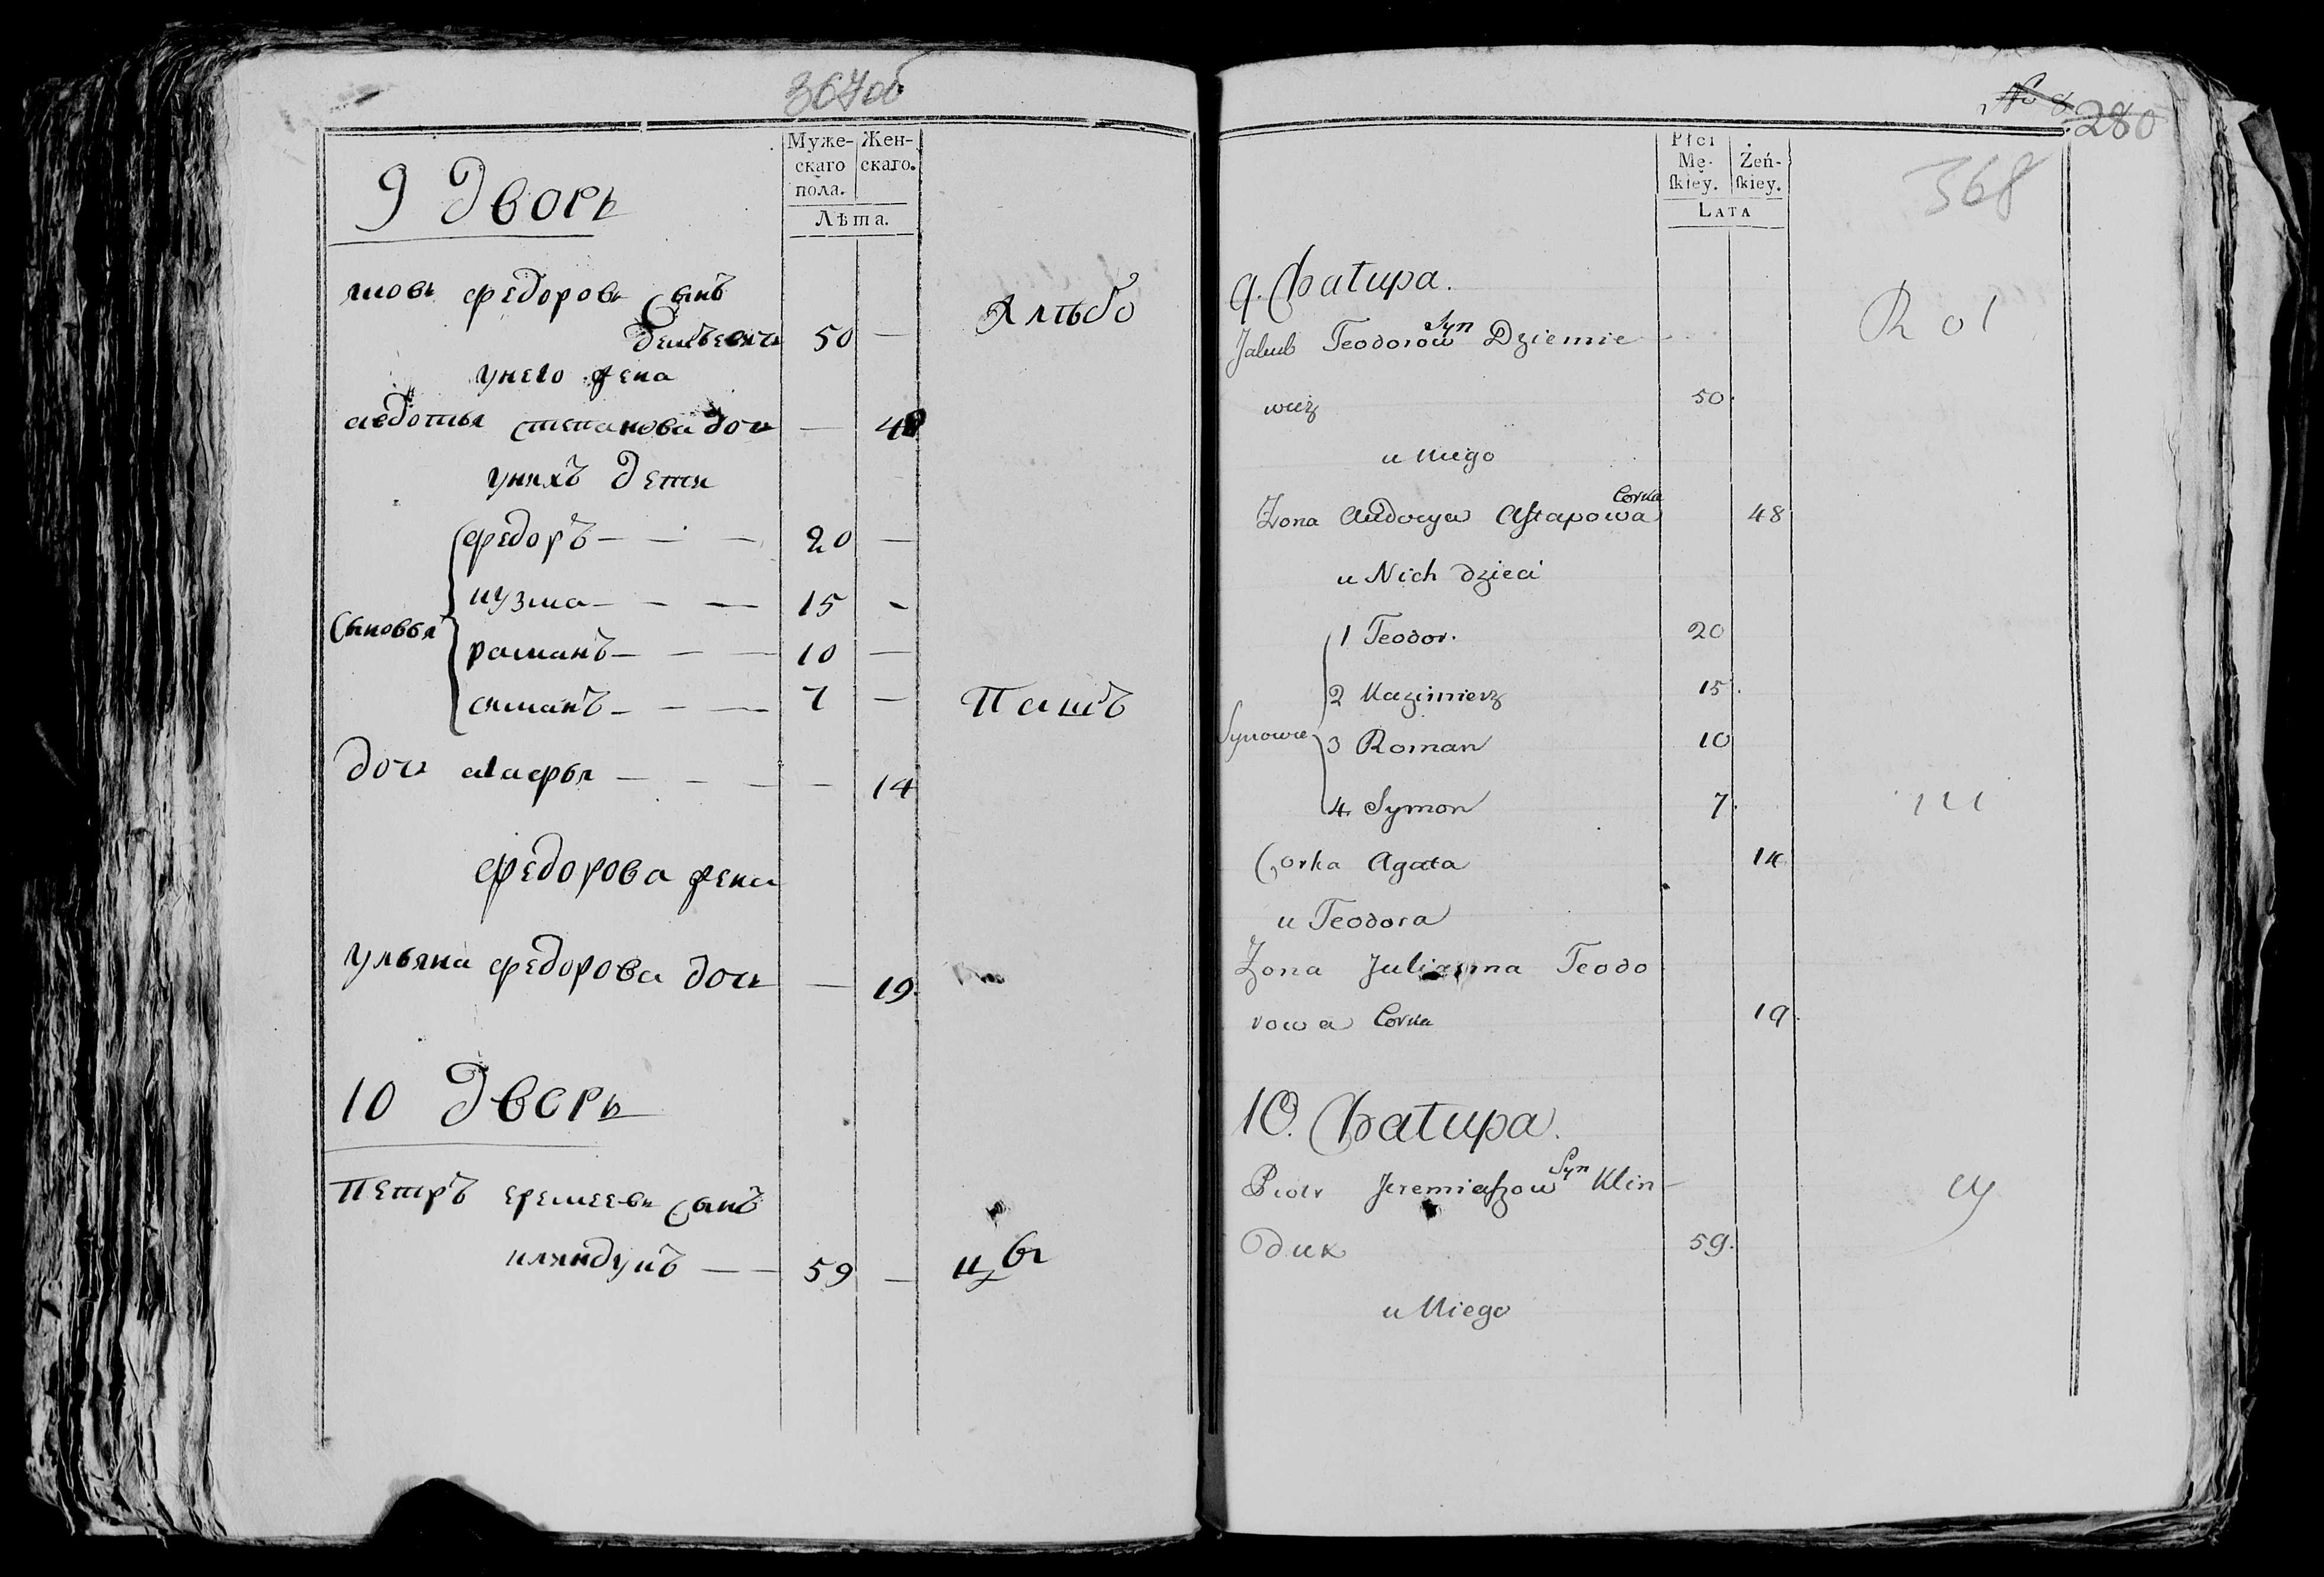 367об
Муже-скаго пола. Жен-скаго.
Лѣта.
9 Дворъ
яковъ федоровъ Сынъ
демьевичъ 50 —
Альбо
унего жена
авдотья степанова дочь — 48
унихъ дети
Сыновья
федоръ — — — 20 —
кузма — — — 15 —
раманъ — — — 10 —
симанъ — — — 7 —
Пашъ
дочь агафья — — — — 14
федорова жена
ульяна федорова дочь — 19.
10 Дворъ
Петръ еремеевъ сынъ
кляндукъ — — 59 —
No 8
280
368
Płci Mę-ſkiey. Żeń-ſkiey.
LATA
9. Chałupa.
Rol
Jakub Teodorow Syn Dziemie
wicz 50.
u Niego
Zona Audocya Astapowa Corka 48
u Nich dzieci
Synowie
1 Teodor. 20
2 Kazimierz 15.
3 Roman 10
4. Symon 7.
Corka Agata 14
u Teodora
Zona Julianna Teodo
rowa Corka 19.
10. Chałupa.
Piotr Jeremiaszow Syn Klin-
Oduk 59.
u Niego